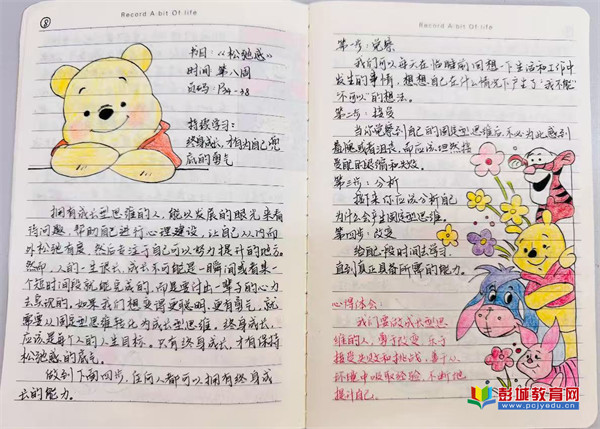 Record A·bit Of life
⑧
书目:《松弛感》
时间:第八周
页码:P34-38
持续学习:
终身成长,才有为自己兜
底的勇气
拥有成长型思维的人,能以发展的眼光来看
待问题,帮助自己进行心理建设,让自己从内而
外松弛有度,然后专注于自己可以努力提升的地方。
然而,人的一生很长,成长不可能是一瞬间或者某一
个短时间段就能完成的,而是要付出一辈子的心力
去实现的。如果我们想变得更聪明、更有勇气,就
需要从固定型思维转化为成长型思维。终身成长,
应该是每个人的人生目标。只有终身成长,才有保持
松弛感的底气。
做到下面四步,任何人都可以拥有终身成
长的能力。
Record A·bit Of life
第一步:觉察
我们可以每天在临睡前回想一下生活和工作中
发生的事情,想想自己在什么情况下产生了“我不能”
“不可以”的想法。
第二步:接受
当你觉察到自己的固定型思维后,不必为此感到
羞愧或者沮丧,而应该坦然接
受它的
第三步:分析
接下来你应该分析自己
为什么会产生固定型思维。
第四步:改变
给自己一段时间去学习,
直到真正具备所需的能力。
心得体会:
我们要做成长型思
维的人,勇于改变,乐于
接受失败和挑战,善于从
环境中吸取经验,不断地
提升自己。
彭城教育网
www.pcjyedu.cn